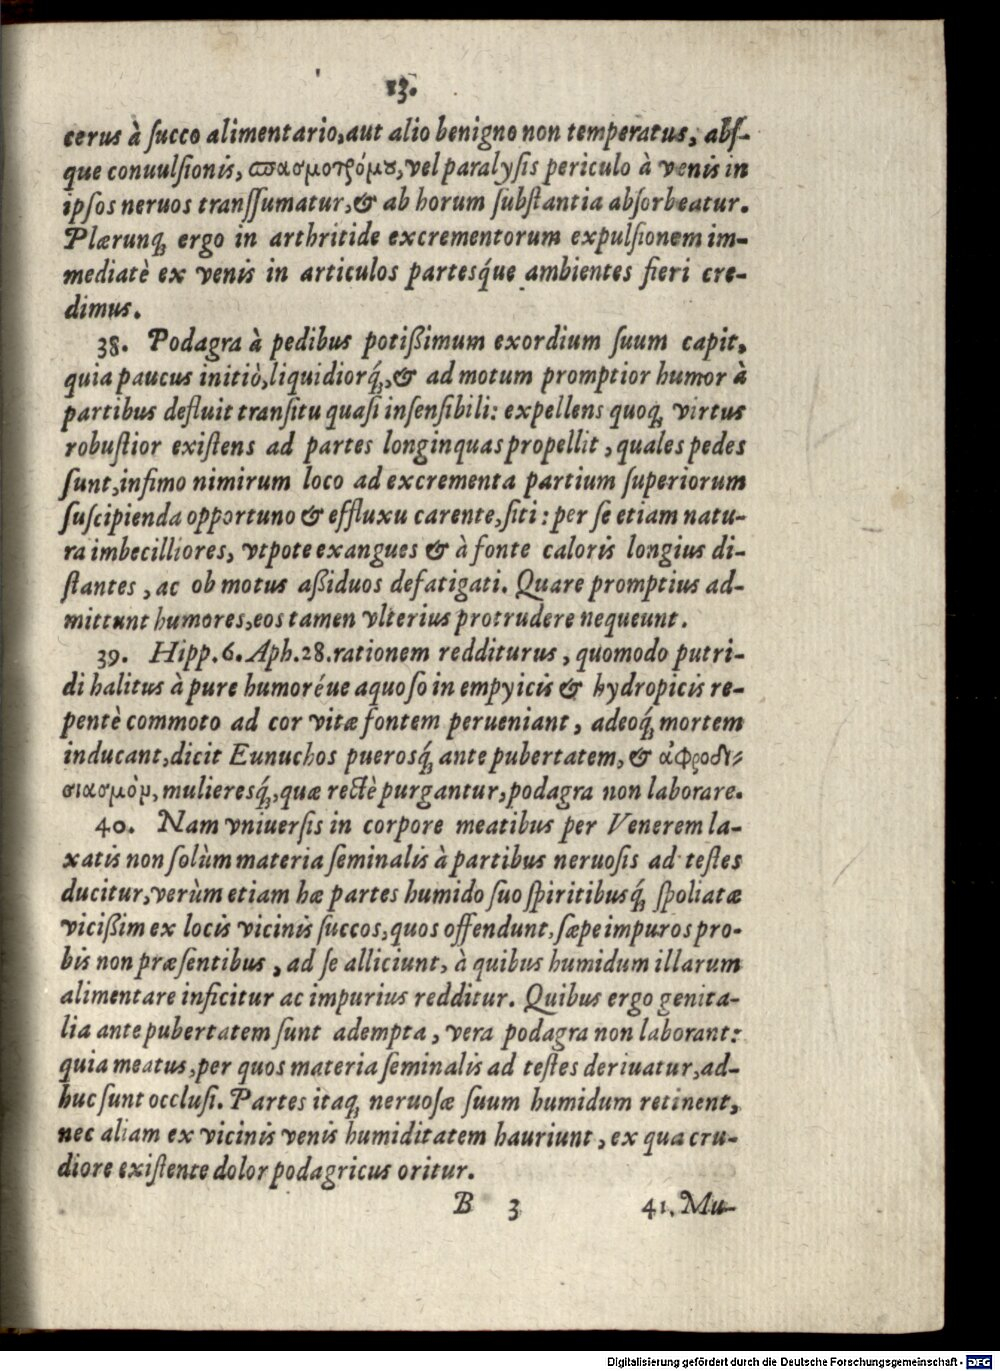 13.
cerus à ſucco alimentario, aut alio benigno non temperatus, abſ-
que conuulſionis, ϖασμοτρόμȣ, vel paralyſis periculo à venis in
ipſos neruos tranſſumatur, & ab horum ſubſtantia abſorbeatur.
Plærunq́; ergo in arthritide excrementorum expulſionem im-
mediatè ex venis in articulos partesq́ue ambientes fieri cre-
dimus.
38. Podagra à pedibus potißimum exordium ſuum capit,
quia paucus initiò, liquidiorq́;, & ad motum promptior humor à
partibus defluit tranſitu quaſi inſenſibili: expellens quoq; virtus
robuſtior exiſtens ad partes longinquas propellit, quales pedes
ſunt, infimo nimirum loco ad excrementa partium ſuperiorum
ſuſcipienda opportuno & effluxu carente, ſiti: per ſe etiam natu-
ra imbecilliores, vtpote exangues & à fonte caloris longius di-
ſtantes, ac ob motus aßiduos defatigati. Quare promptius ad-
mittunt humores, eos tamen vlterius protrudere nequeunt.
39. Hipp. 6. Aph. 28. rationem redditurus, quomodo putri-
di halitus à pure humoréue aquoſo in empyicis & hydropicis re-
pentè commoto ad cor vitæ fontem perueniant, adeoq́; mortem
inducant, dicit Eunuchos puerosq́; ante pubertatem, & ἀφροδι-
σιασμὸν, mulieresq́;, quæ rectè purgantur, podagra non laborare.
40. Nam vniuerſis in corpore meatibus per Venerem la-
xatis non ſolùm materia ſeminalis à partibus neruoſis ad teſtes
ducitur, verùm etiam hæ partes humido ſuo ſpiritibusq́; ſpoliatæ
vicißim ex locis vicinis ſuccos, quos offendunt, ſæpe impuros pro-
bis non præſentibus, ad ſe alliciunt, à quibus humidum illarum
alimentare inficitur ac impurius redditur. Quibus ergo genita-
lia ante pubertatem ſunt adempta, vera podagra non laborant:
quia meatus, per quos materia ſeminalis ad teſtes deriuatur, ad-
huc ſunt occluſi. Partes itaq; neruoſæ ſuum humidum retinent,
nec aliam ex vicinis venis humiditatem hauriunt, ex qua cru-
diore exiſtente dolor podagricus oritur.
B 3 41. Mu-
Digitalisierung gefördert durch die Deutsche Forschungsgemeinschaft - DFG